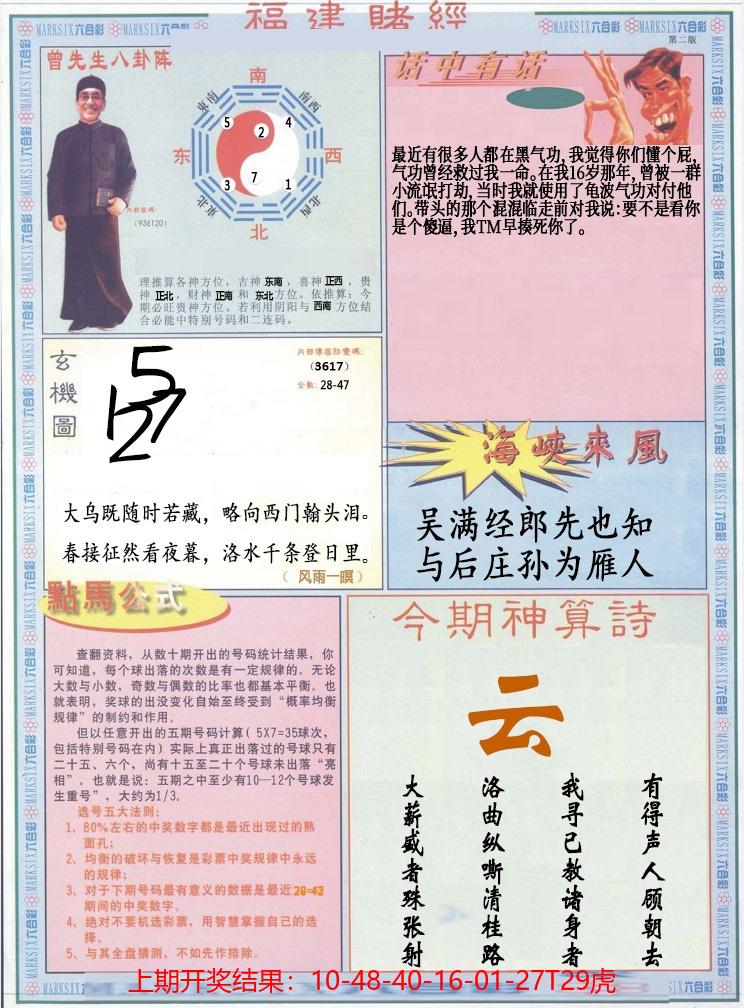 福建賭經
MARKSIX六合彩 MARKSIX六合彩
MARKSIX六合彩 MARKSIX六合彩
第二版
曾先生八卦阵
南
东南
南西
东
西
东北
北西
北
5
2
4
3
7
1
内部密碼:
(936120)
理推算各神方位，吉神 东南 ，喜神 正西 ，贵
神 正北 ，财神 正南 和 东北 方位。依推算：今
期必旺贵神方位。若利用阴阳与 西南 方位结
合必能中特别号码和二连码。
话中有话
最近有很多人都在黑气功, 我觉得你们懂个屁,
气功曾经救过我一命。在我16岁那年, 曾被一群
小流氓打劫, 当时我就使用了龟波气功对付他
们。带头的那个混混临走前对我说: 要不是看你
是个傻逼, 我TM早揍死你了。
玄機圖
5
127
2
(3617)
合數: 28-47
大乌既随时若藏，略向西门翰头泪。
春接征然看夜暮，洛水千条登日里。
（ 风雨一暝 ）
海峽來風
吴满经郎先也知
与后庄孙为雁人
點馬公式
查翻资料，从数十期开出的号码统计结果，你
可知道，每个球出落的次数是有一定规律的。无论
大数与小数，奇数与偶数的比率也都基本平衡。也
就表明，奖球的出没变化自始至终受到“概率均衡
规律”的制约和作用。
但以任意开出的五期号码计算( 5X7=35球次，
包括特别号码在内) 实际上真正出落过的号球只有
二十五、六个，尚有十五至二十个号球未出落“亮
相”。也就是说：五期之中至少有10—12个号球发
生重号”，大约为1/3。
选号五大法则：
1、80%左右的中奖数字都是最近出现过的熟
面孔；
2、均衡的破坏与恢复是彩票中奖规律中永远
的规律；
3、对于下期号码最有意义的数据是最近28-42
期间的中奖数字。
4、绝对不要机选彩票，用智慧掌握自己的选
择。
5、与其全盘猜测，不如先作排除．
今期神算詩
云
有得声人顾朝去
我寻已教诸身者
洛曲纵嘶清桂路
大薪威者殊张射
上期开奖结果：10-48-40-16-01-27T29虎